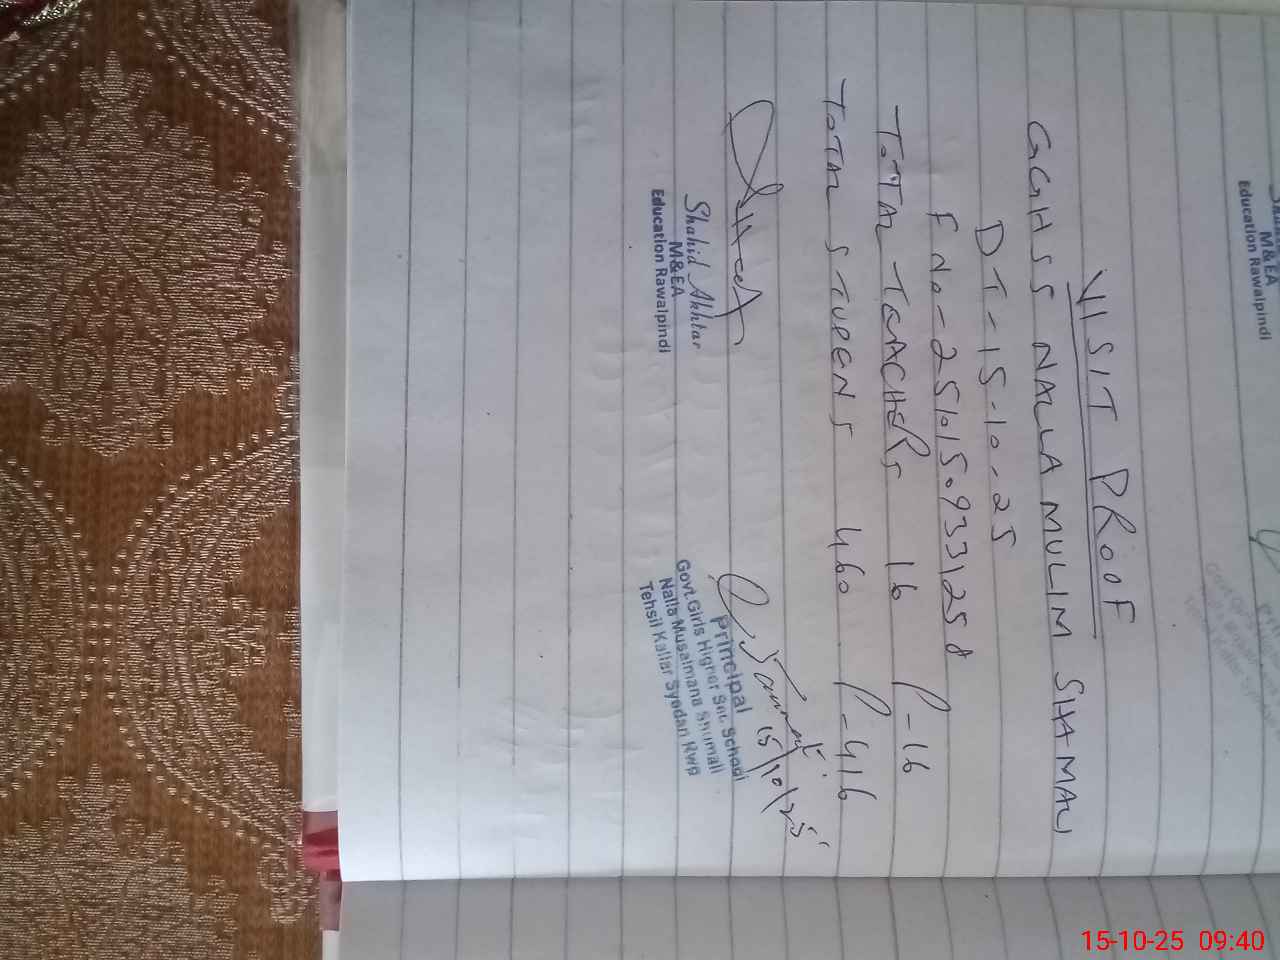 VISIT PROOF
GGHSS NALLA MULIM SHAMALI
DT-15-10-25
F No-25101509331258
TOTTAL TEACHERS 16 P-16
TOTAL STUDENS 460 P-416
15/10/25
Shahid Akhtar
M&EA
Education Rawalpindi
Principal
Govt. Girls Higher Sec. School
Nalla Musalmana Shumali
Tehsil Kallar Syedan Rwp
M&EA
Education Rawalpindi
15-10-25 09:40